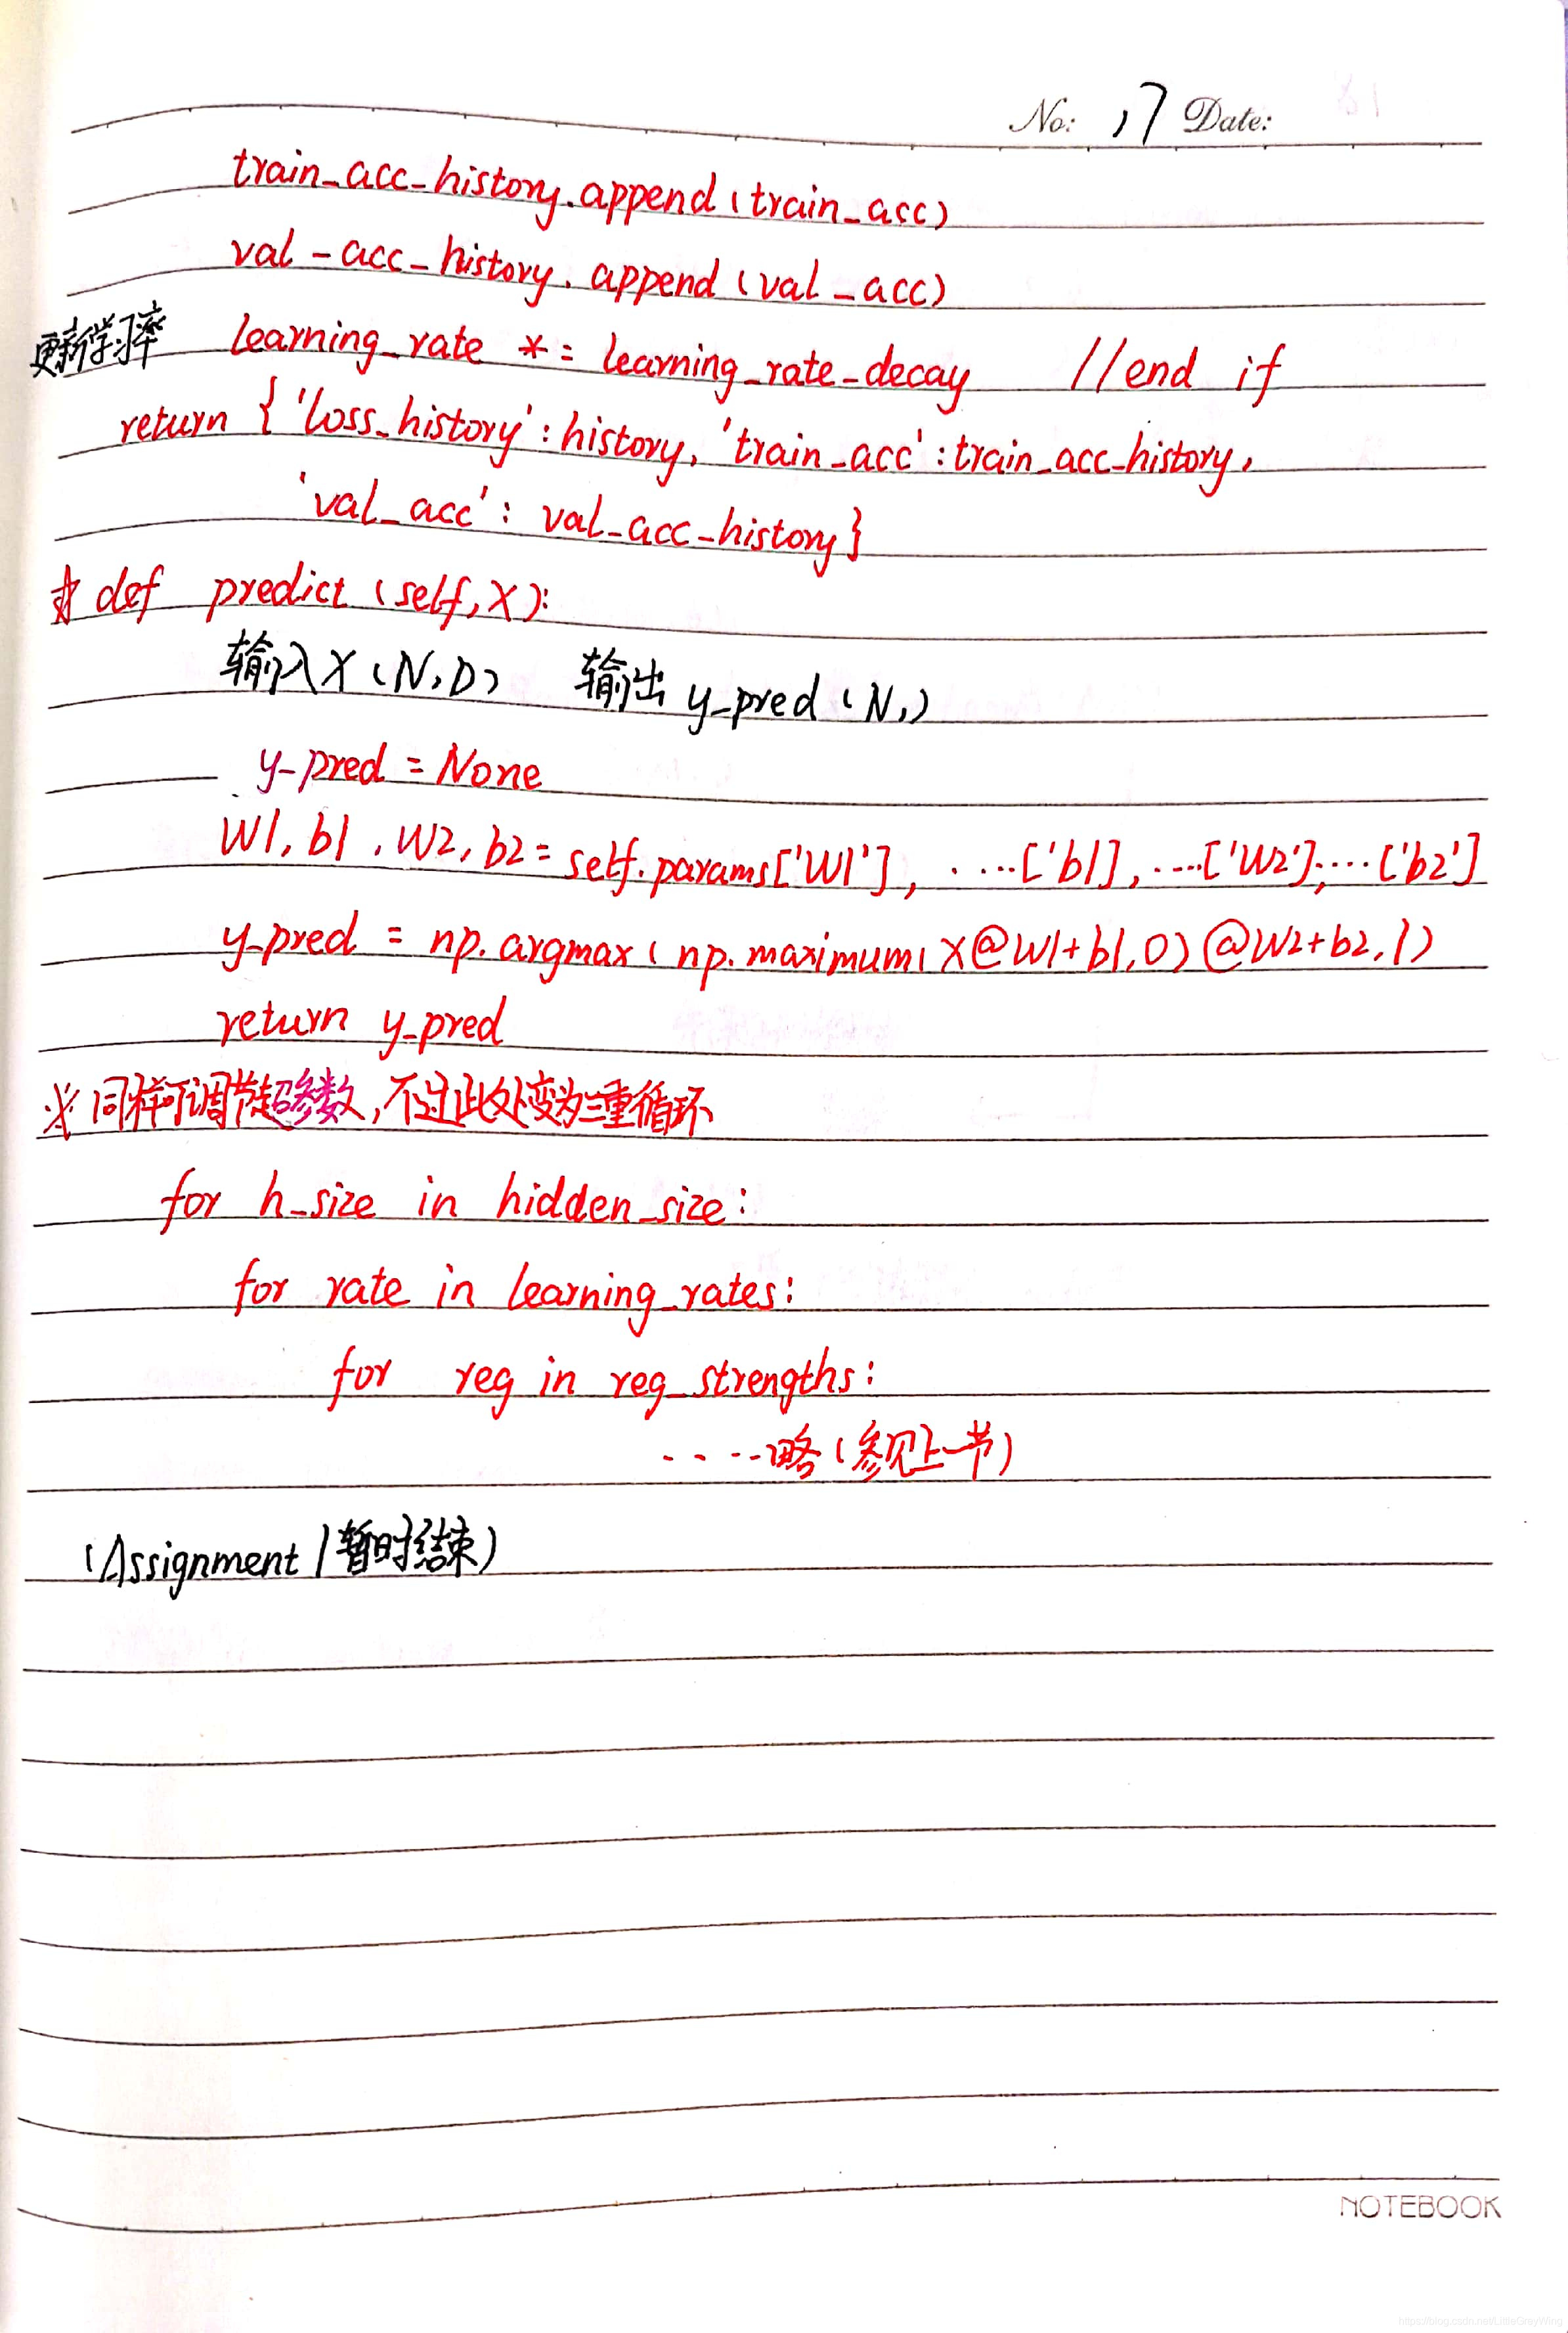 No: 17 Date:
train_acc_history.append(train_acc)
val_acc_history.append(val_acc)
更新学习率 learning_rate *= learning_rate_decay //end if
return {'loss_history':history,'train_acc':train_acc_history,
'val_acc':val_acc_history}
☆ def predict(self,X):
输入X(N,D) 输出y_pred(N,)
y_pred = None
W1,b1,W2,b2=self.params['W1'],....['b1],....['W2'],....['b2']
y_pred = np.argmax(np.maximum(X@W1+b1,0)@W2+b2,1)
return y_pred
※同样可调节超参数,不过此处变为三重循环
for h_size in hidden_size:
for rate in learning_rates:
for reg in reg_strengths:
....略(参见上一节)
(Assignment 1暂时结束)
NOTEBOOK
https://blog.csdn.net/LittleGreyWing